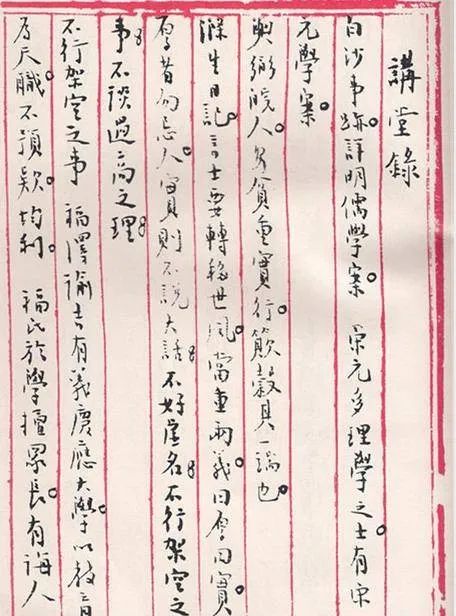 講堂錄
白沙事跡詳明儒學案。宋元多理學之士有宋
元學案。
與弼皖人。貧重實行穀其一端也。
滌生日記。言士要轉移世風。當重兩義曰厚曰實。
厚者勿忌人實則不說大話。不好虛名。不行架空之
事。不談過高之理。
不行架空之事 福澤諭吉有義慶應大學以教育
為天職。不預均利。福氏於學擅眾長。有誨人